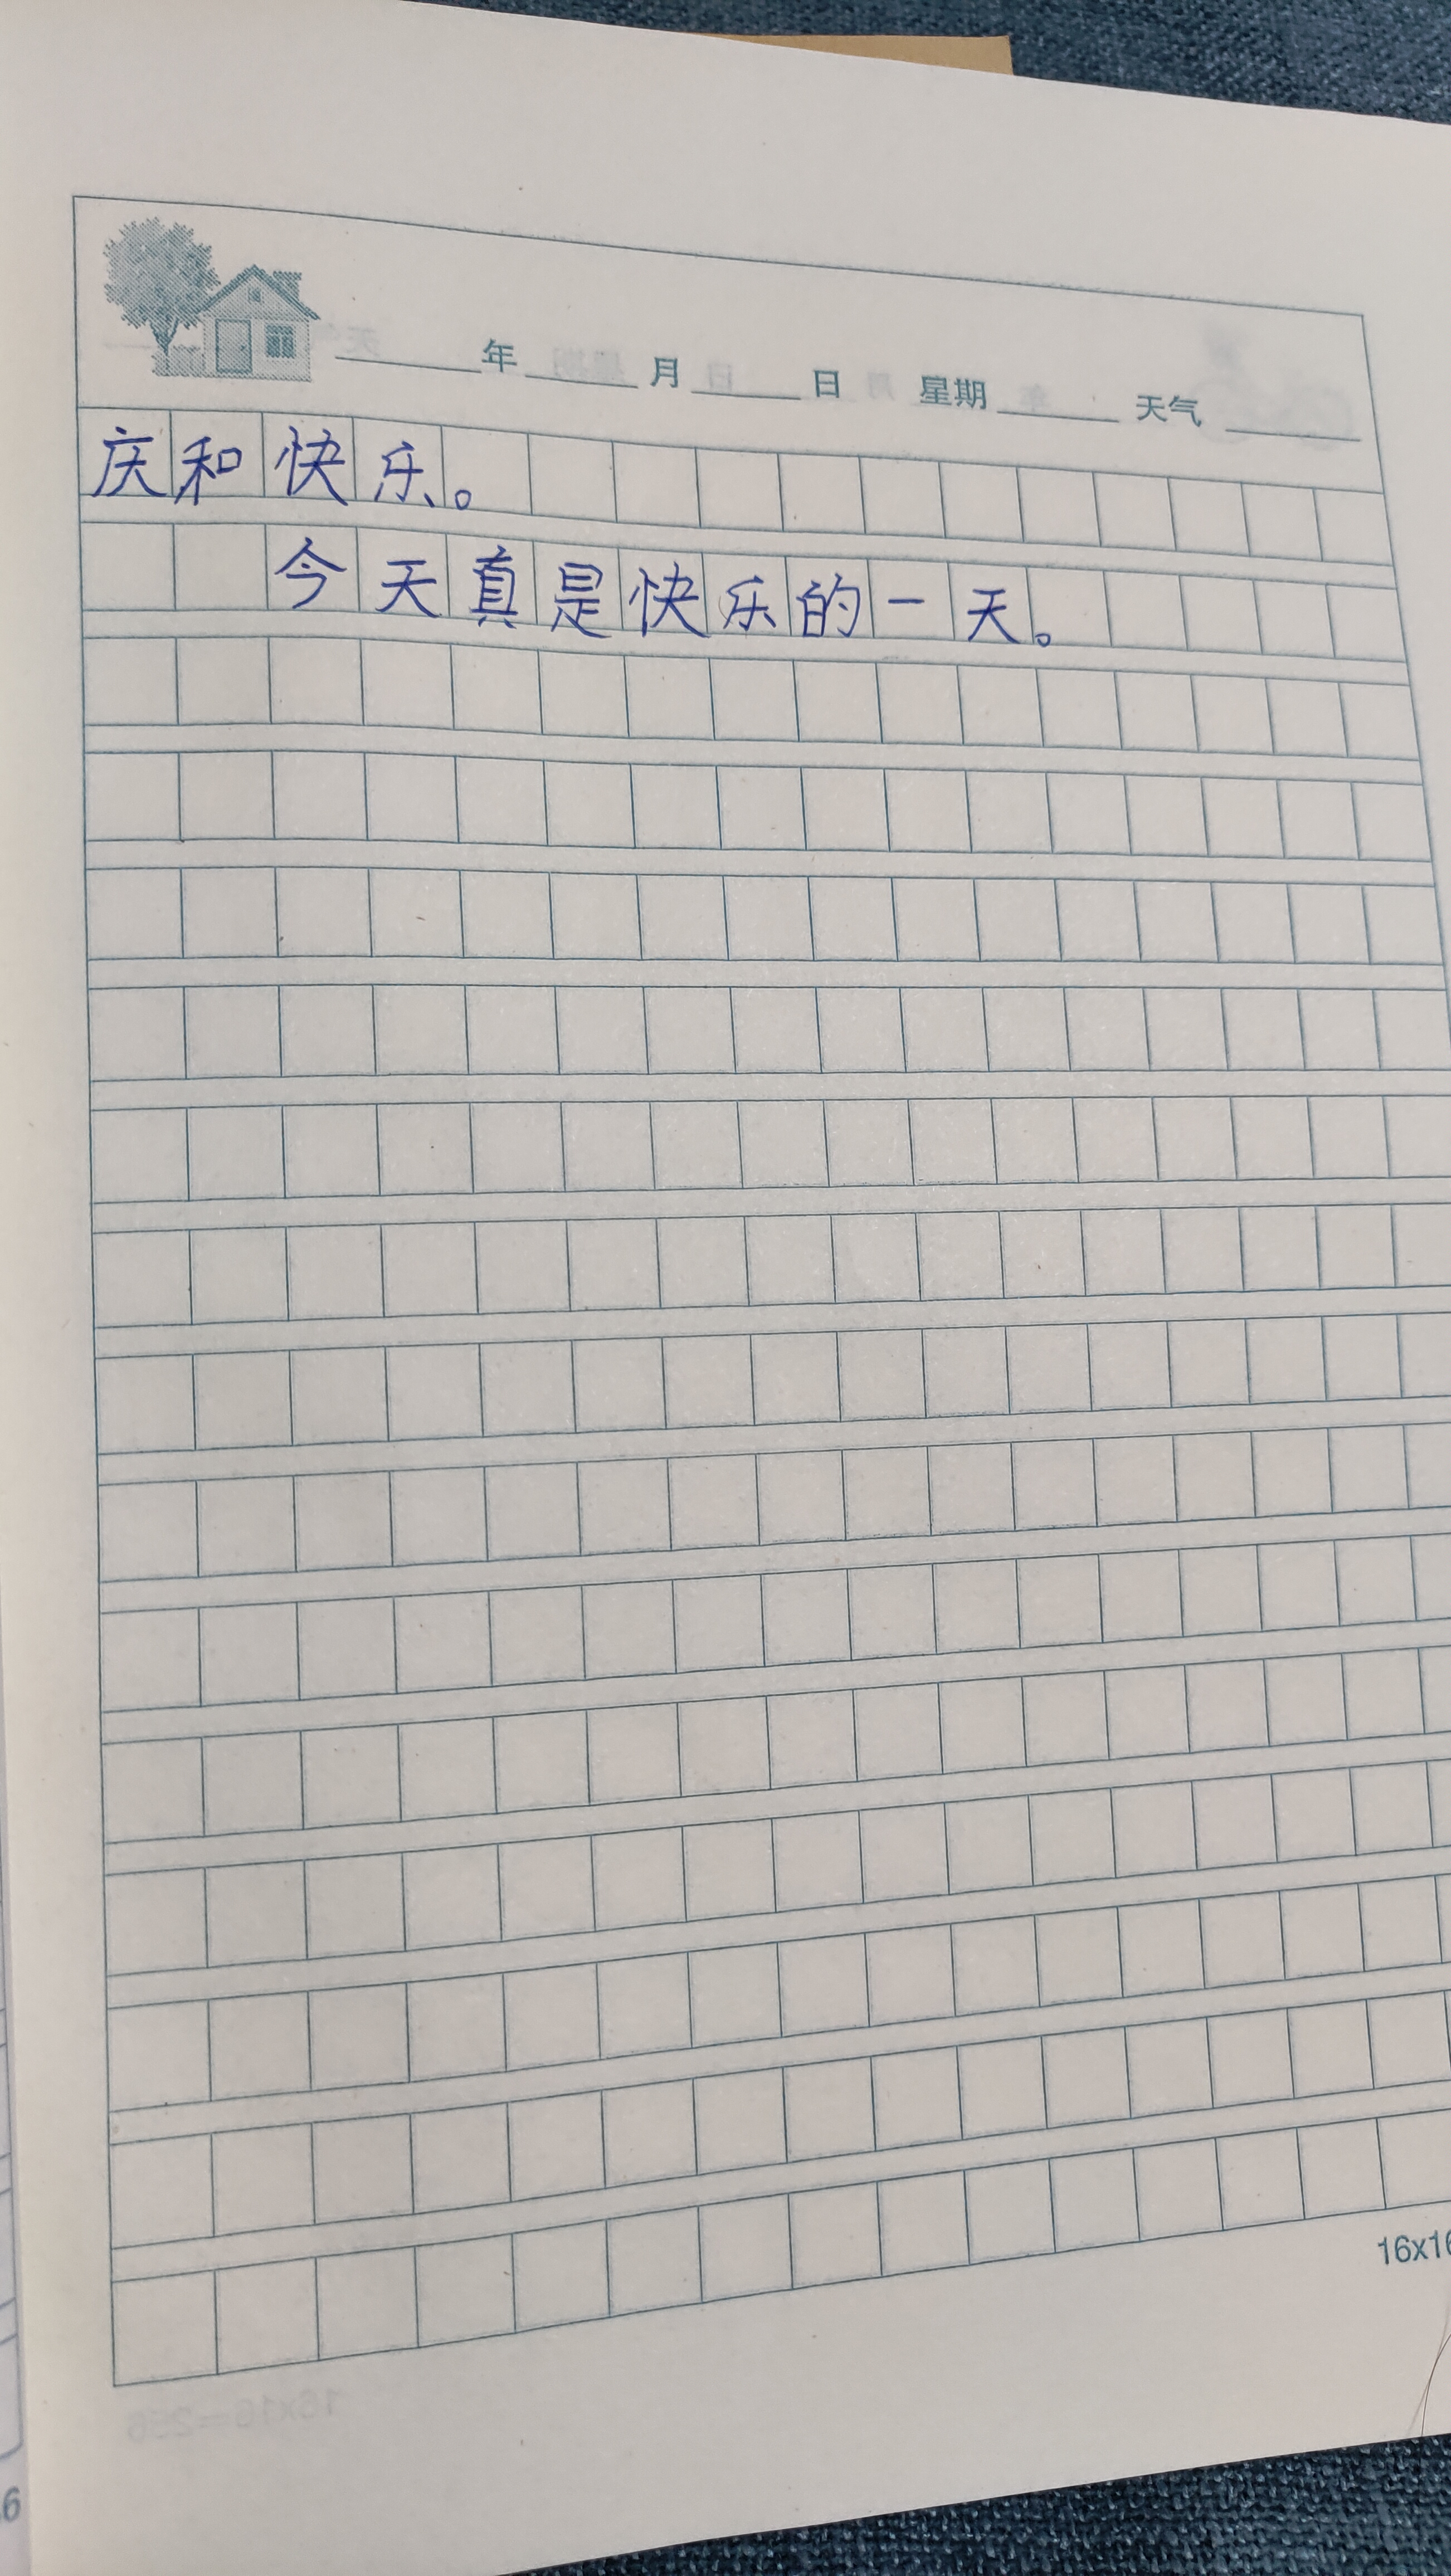 年 月 日 星期 天气
庆和快乐。
今天真是快乐的一天。
16x16